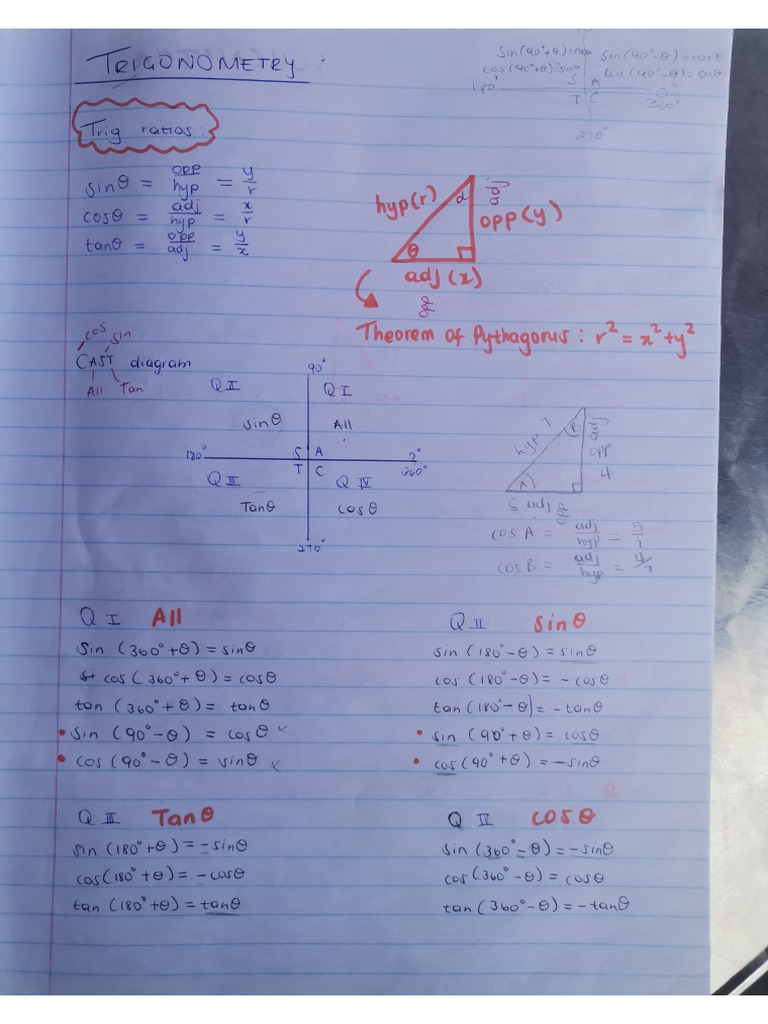 TRIGONOMETRY
Sin(90°+θ)=cosθ sin(90°-θ)=cosθ
cos(90°+θ)=-sinθ cos(90°-θ)=sinθ
180° S A 0°
T C 360°
270°
Trig ratios:
sinθ = opp/hyp = y/r
cosθ = adj/hyp = x/r
tanθ = opp/adj = y/x
hyp(r) α adj
opp(y)
θ
adj(x)
opp
Theorem of Pythagorus: r² = x²+y²
cos sin
CAST diagram
All Tan
90°
QII QI
sinθ All
180° S A 0°
T C 360°
QIII QIV
Tanθ cosθ
270°
hyp 7 B adj
opp
4
A
5 adj
opp
cos A = adj/hyp = 5/7
cos B = adj/hyp = 4/7
QI All
Sin (360°+θ) = sinθ
cos(360°+θ) = cosθ
tan (360°+θ) = tanθ
• sin (90°-θ) = cosθ
• cos (90°-θ) = sinθ
QII sinθ
sin (180°-θ) = sinθ
cos (180°-θ) = -cosθ
tan(180°-θ) = -tanθ
• sin (90°+θ) = cosθ
• cos(90°+θ) = -sinθ
QIII Tanθ
sin (180°+θ) = -sinθ
cos(180°+θ) = -cosθ
tan (180°+θ) = tanθ
QIV cosθ
sin (360°-θ) = -sinθ
cos(360°-θ) = cosθ
tan(360°-θ) = -tanθ